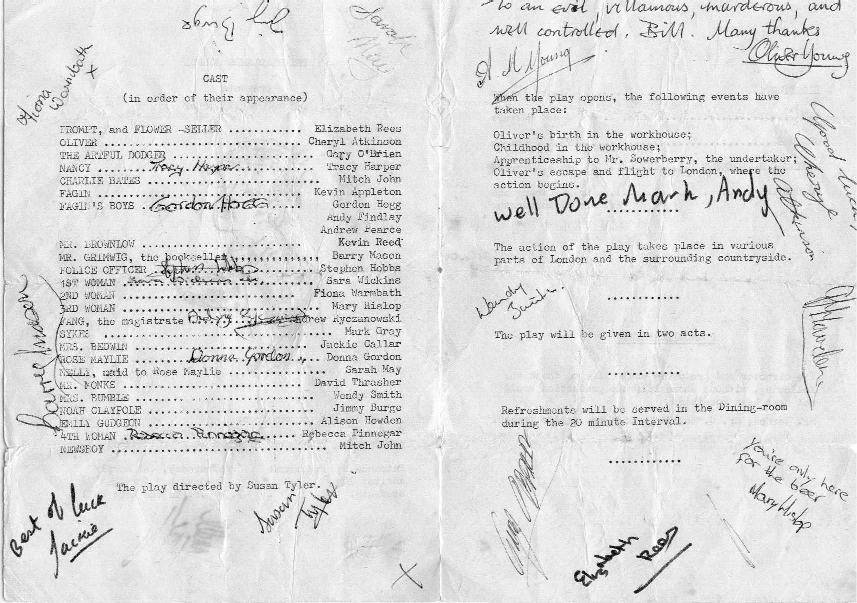 Jim Burge
Sarah
May
Fiona
Warmbath
x
CAST
(in order of their appearance)
PROMPT, and FLOWER-SELLER .............. Elizabeth Rees
OLIVER .............. Cheryl Atkinson
THE ARTFUL DODGER .............. Gary O'Brien
NANCY Tracy Harper .............. Tracy Harper
CHARLIE BATES .............. Mitch John
FAGIN .............. Kevin Appleton
FAGIN'S BOYS Gordon Hogg .............. Gordon Hogg
Andy Findlay
Andrew Pearce
MR. BROWNLOW .............. Kevin Reed
MR. GRIMWIG, the bookseller .............. Barry Mason
POLICE OFFICER .............. Stephen Hobbs
1ST WOMAN .............. Sara Wickins
2ND WOMAN .............. Fiona Warmbath
3RD WOMAN .............. Mary Hislop
FANG, the magistrate .............. Andrew Ryczanowski
SYKES .............. Mark Gray
MRS. BEDWIN .............. Jackie Callar
ROSE MAYLIE Donna Gordon .............. Donna Gordon
NELLY, maid to Rose Maylie .............. Sarah May
MR. MONKS .............. David Thrasher
MRS. BUMBLE .............. Wendy Smith
NOAH CLAYPOLE .............. Jimmy Burge
EMILY GUDGEON .............. Alison Howden
4TH WOMAN Rebecca Pinnegar .............. Rebecca Pinnegar
NEWSBOY .............. Mitch John
The play directed by Susan Tyler.
Susan
Tyler
Best of luck
Jackie
x
To an evil, villainous, murderous, and
well controlled, Bill. Many thanks
Oliver Young
Young
When the play opens, the following events have
taken place:
Oliver's birth in the workhouse;
Childhood in the workhouse;
Apprenticeship to Mr. Sowerberry, the undertaker;
Oliver's escape and flight to London, where the
action begins.
Well Done Mark, Andy
............
Good luck
Cheryl
Atkinson
The action of the play takes place in various
parts of London and the surrounding countryside.
............
Wendy
Smith.
The play will be given in two acts.
............
Refreshments will be served in the Dining-room
during the 20 minute Interval.
............
You're only here
for the beer
Mary Hislop
Elizabeth
Rees